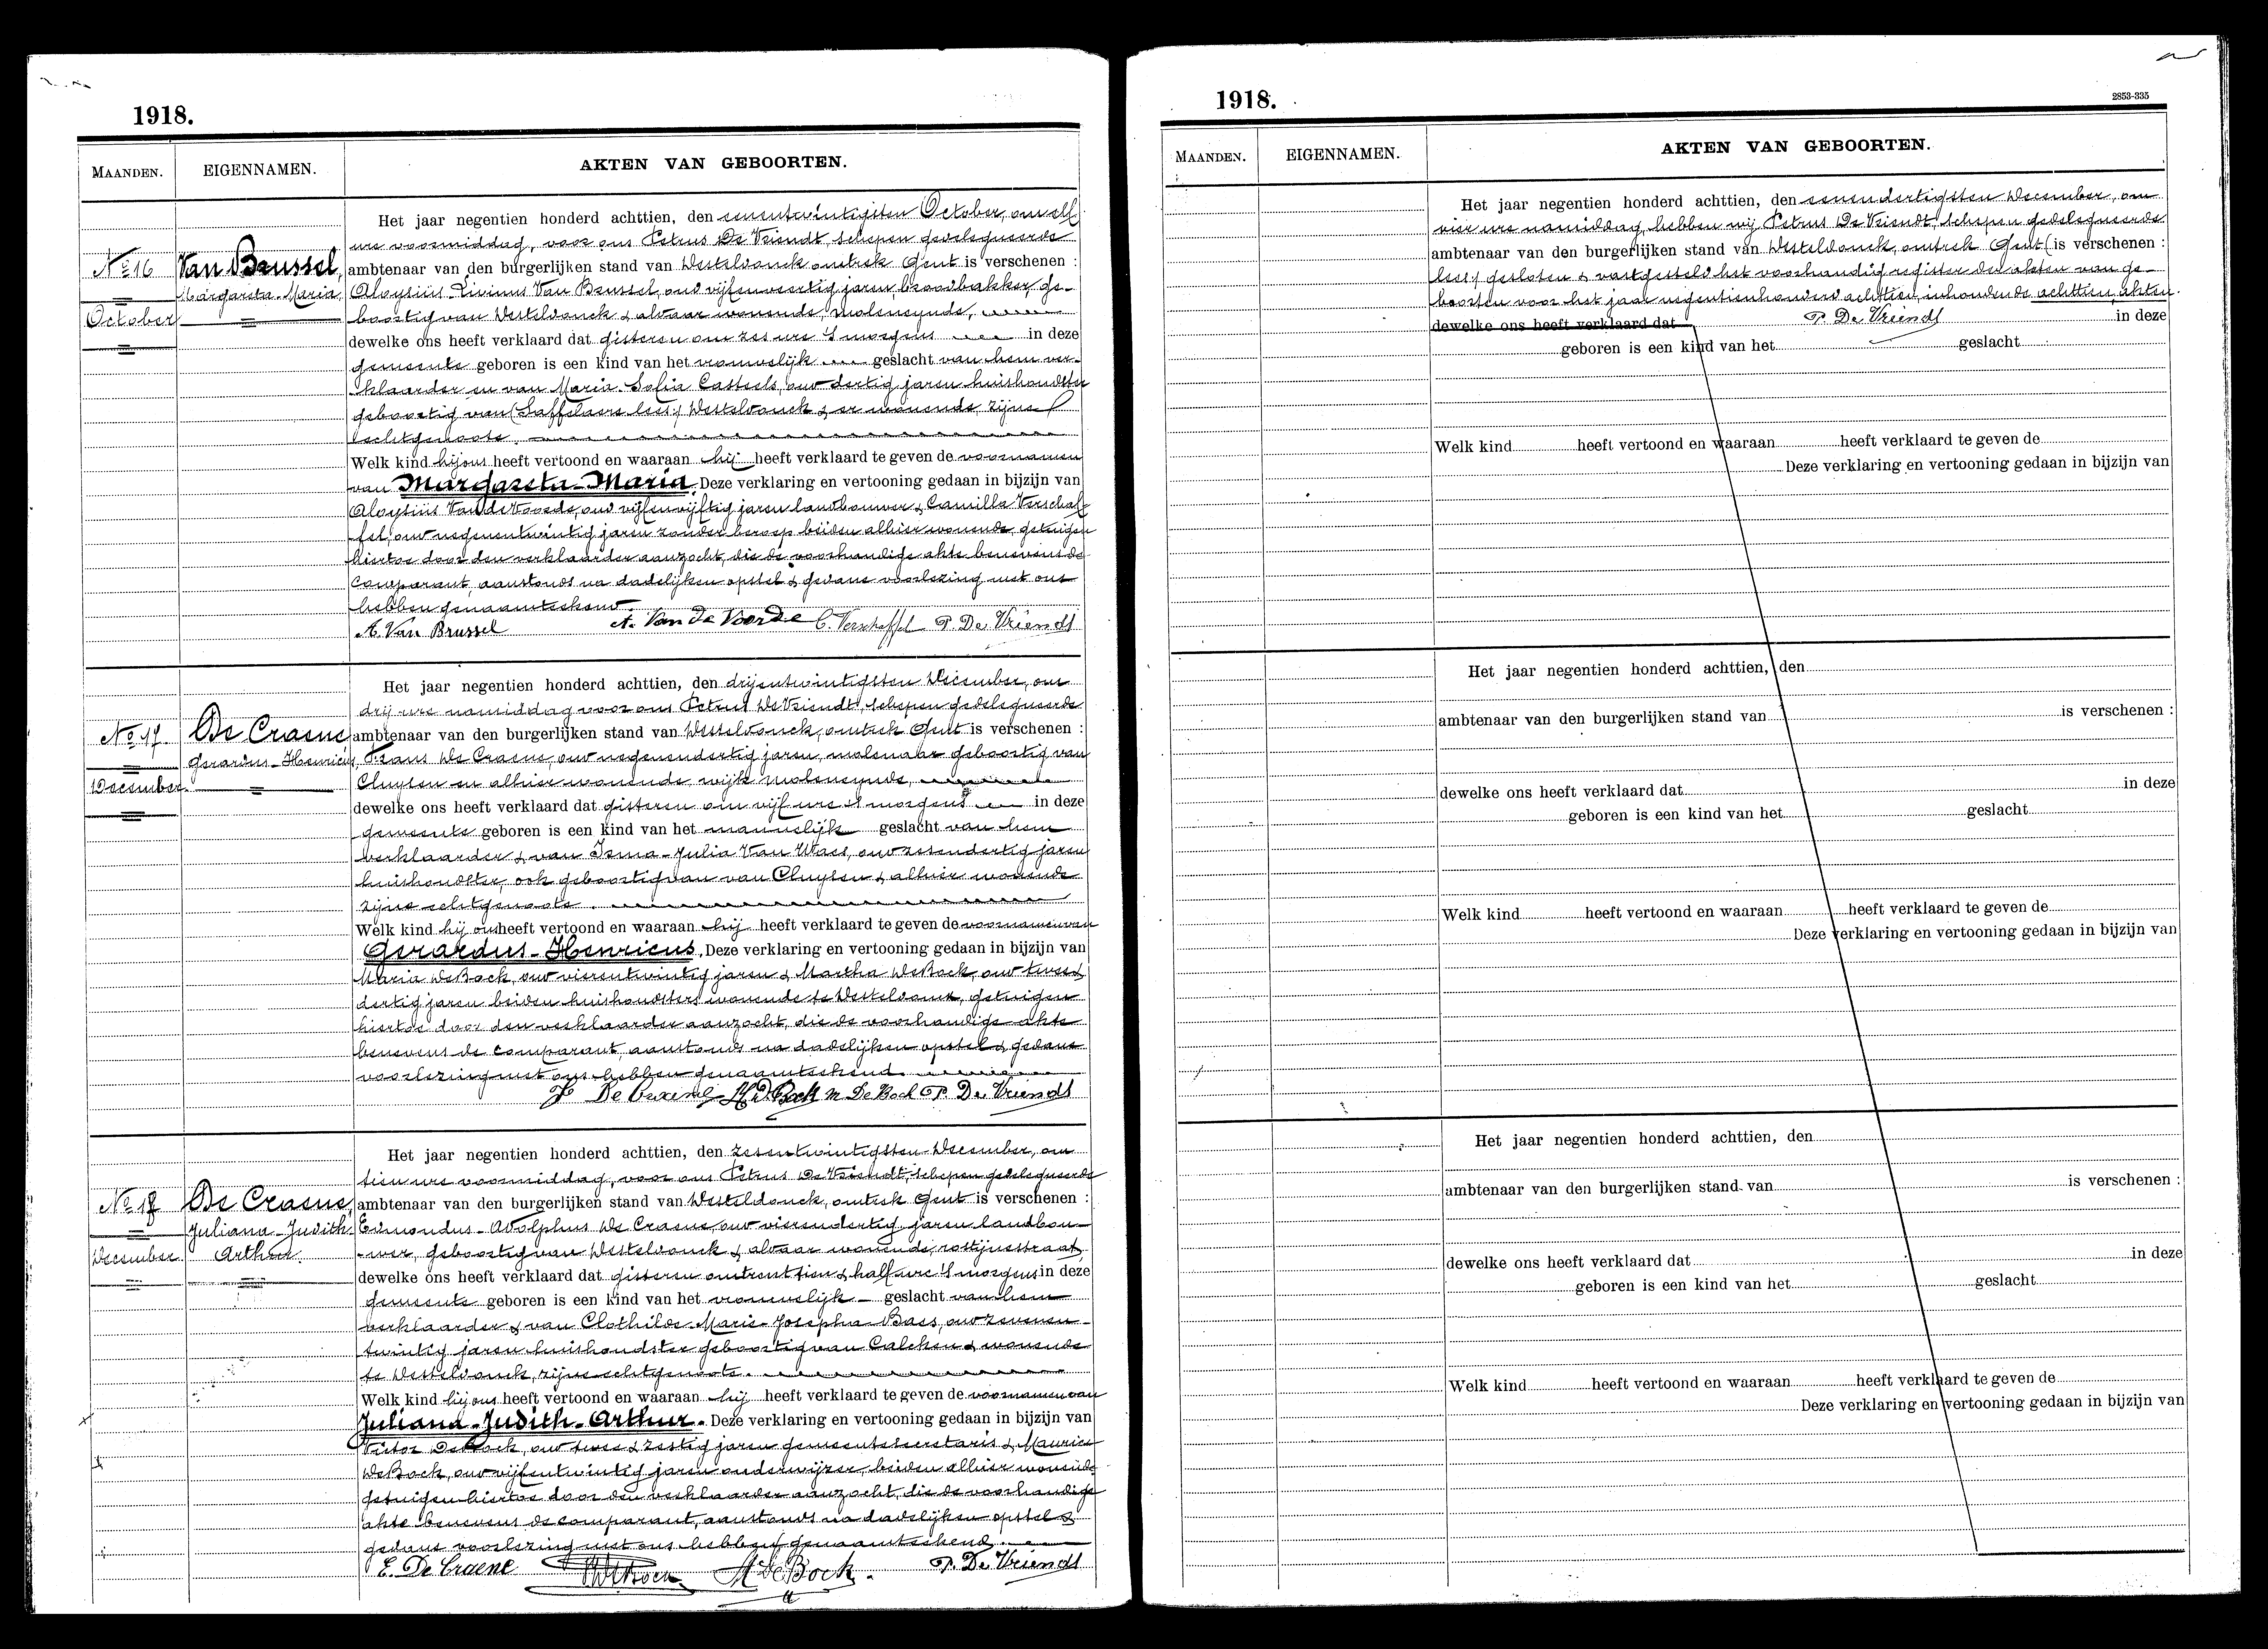 1918.
MAANDEN.
EIGENNAMEN.
AKTEN VAN GEBOORTEN.
No 16
October
Van Brussel,
Margareta-Maria
Het jaar negentien honderd achttien, den eenentwintigsten October, om elf
ure voormiddag, voor ons Petrus De Vriendt, schepen gedelegueerde
ambtenaar van den burgerlijken stand van Westeldonck, omtrek Gent is verschenen :
Aloysius-Livinus Van Brussel, oud vijfenveertig jaren, broodbakker, ge-
boortig van Westeldonck & aldaar wonende, moleneynde,
dewelke ons heeft verklaard dat gisteren om zes ure 's morgens in deze
gemeente geboren is een kind van het vrouwelijk geslacht van hem ver-
klaarder en van Maria-Sofia Casteels, oud dertig jaren, huishoudster
geboortig van (Saffelaere lees:) Westeldonck & er wonende, zijne
echtgenoote.
Welk kind hij ons heeft vertoond en waaraan hij heeft verklaard te geven de voornamen
van Margareta-Maria. Deze verklaring en vertooning gedaan in bijzijn van
Aloysius Van de Voorde, oud vijfenvijftig jaren landbouwer & Camilla Verschaf-
fel, oud negenentwintig jaren zonder beroep beiden alhier wonende, getuigen
hiertoe door den verklaarder aanzocht, die de voorhandige akte benevens de
comparant, aanstonds na dadelijken opstel & gedane voorlezing met ons
hebben genaamteekend.
A. Van Brussel A. Van de Voorde C. Verschaffel P. De Vriendt
No 17
December
De Craene,
Gerardus-Henricus
Het jaar negentien honderd achttien, den drijentwintigsten December, om
drij ure namiddag voor ons Petrus De Vriendt, schepen gedelegueerde
ambtenaar van den burgerlijken stand van Westeldonck, omtrek Gent is verschenen :
Frans De Craene, oud negenendertig jaren, molenaar geboortig van
Cluysen en alhier wonende wijk moleneynde,
dewelke ons heeft verklaard dat gisteren om vijf ure 's morgens in deze
gemeente geboren is een kind van het mannelijk geslacht van hem
verklaarder & van Irma-Julia Van Waes, oud zesendertig jaren
huishoudster, ook geboortig van van Cluysen & alhier wonende
zijne echtgenoote.
Welk kind hij ons heeft vertoond en waaraan hij heeft verklaard te geven de voornamen van
Gerardus-Henricus. Deze verklaring en vertooning gedaan in bijzijn van
Maria De Bock, oud vierentwintig jaren & Martha De Bock, oud twee &
dertig jaren beiden huishoudsters wonende te Westeldonck, getuigen
hiertoe door den verklaarder aanzocht, die de voorhandige akte
benevens de comparant, aanstonds na dadelijken opstel & gedane
voorlezing met ons hebben genaamteekend.
De Craene M De Bock P. De Vriendt
No 18
December
De Craene,
Juliana-Judith
Arthur.
Het jaar negentien honderd achttien, den zesentwintigsten December, om
tien ure voormiddag, voor ons Petrus De Vriendt, schepen gedelegueerde
ambtenaar van den burgerlijken stand van Westeldonck, omtrek Gent is verschenen :
Edmondus-Adolphus De Craene, oud vierendertig jaren landbou-
wer, geboortig van Westeldonck & aldaar wonende, rostijnestraat,
dewelke ons heeft verklaard dat gisteren omtrent tien & half ure 's morgens in deze
gemeente geboren is een kind van het vrouwelijk geslacht van hem
verklaarder & van Clothilde-Marie-Josepha Baes, oud zevenen-
twintig jaren huishoudster geboortig van Calcken & wonende
te Westeldonck, zijne echtgenoote.
Welk kind hij ons heeft vertoond en waaraan hij heeft verklaard te geven de voornamen van
Juliana-Judith-Arthur. Deze verklaring en vertooning gedaan in bijzijn van
Victor De Bock, oud twee & zestig jaren gemeentesecretaris & Maurice
De Bock, oud vijfentwintig jaren onderwijzer, beiden alhier wonende
getuigen hiertoe door den verklaarder aanzocht, die de voorhandige
akte benevens de comparant, aanstonds na dadelijken opstel &
gedane voorlezing met ons hebben genaamteekend.
E. De Craene M De Bock. P. De Vriendt
1918.
2853-335
MAANDEN.
EIGENNAMEN.
AKTEN VAN GEBOORTEN.
Het jaar negentien honderd achttien, den eenendertigsten December, om
vier ure namiddag, hebben wij Petrus De Vriendt, schepen gedelegueerde
ambtenaar van den burgerlijken stand van Westeldonck, omtrek Gent (is verschenen :
lees:) gesloten & vastgesteld het voorhandig register der akten van ge-
boorten voor het jaar negentienhonderd achttien, inhoudende achttien akten.
dewelke ons heeft verklaard dat P. De Vriendt in deze
geboren is een kind van het geslacht
Welk kind heeft vertoond en waaraan heeft verklaard te geven de
Deze verklaring en vertooning gedaan in bijzijn van
Het jaar negentien honderd achttien, den
ambtenaar van den burgerlijken stand van is verschenen :
dewelke ons heeft verklaard dat in deze
geboren is een kind van het geslacht
Welk kind heeft vertoond en waaraan heeft verklaard te geven de
Deze verklaring en vertooning gedaan in bijzijn van
Het jaar negentien honderd achttien, den
ambtenaar van den burgerlijken stand van is verschenen :
dewelke ons heeft verklaard dat in deze
geboren is een kind van het geslacht
Welk kind heeft vertoond en waaraan heeft verklaard te geven de
Deze verklaring en vertooning gedaan in bijzijn van